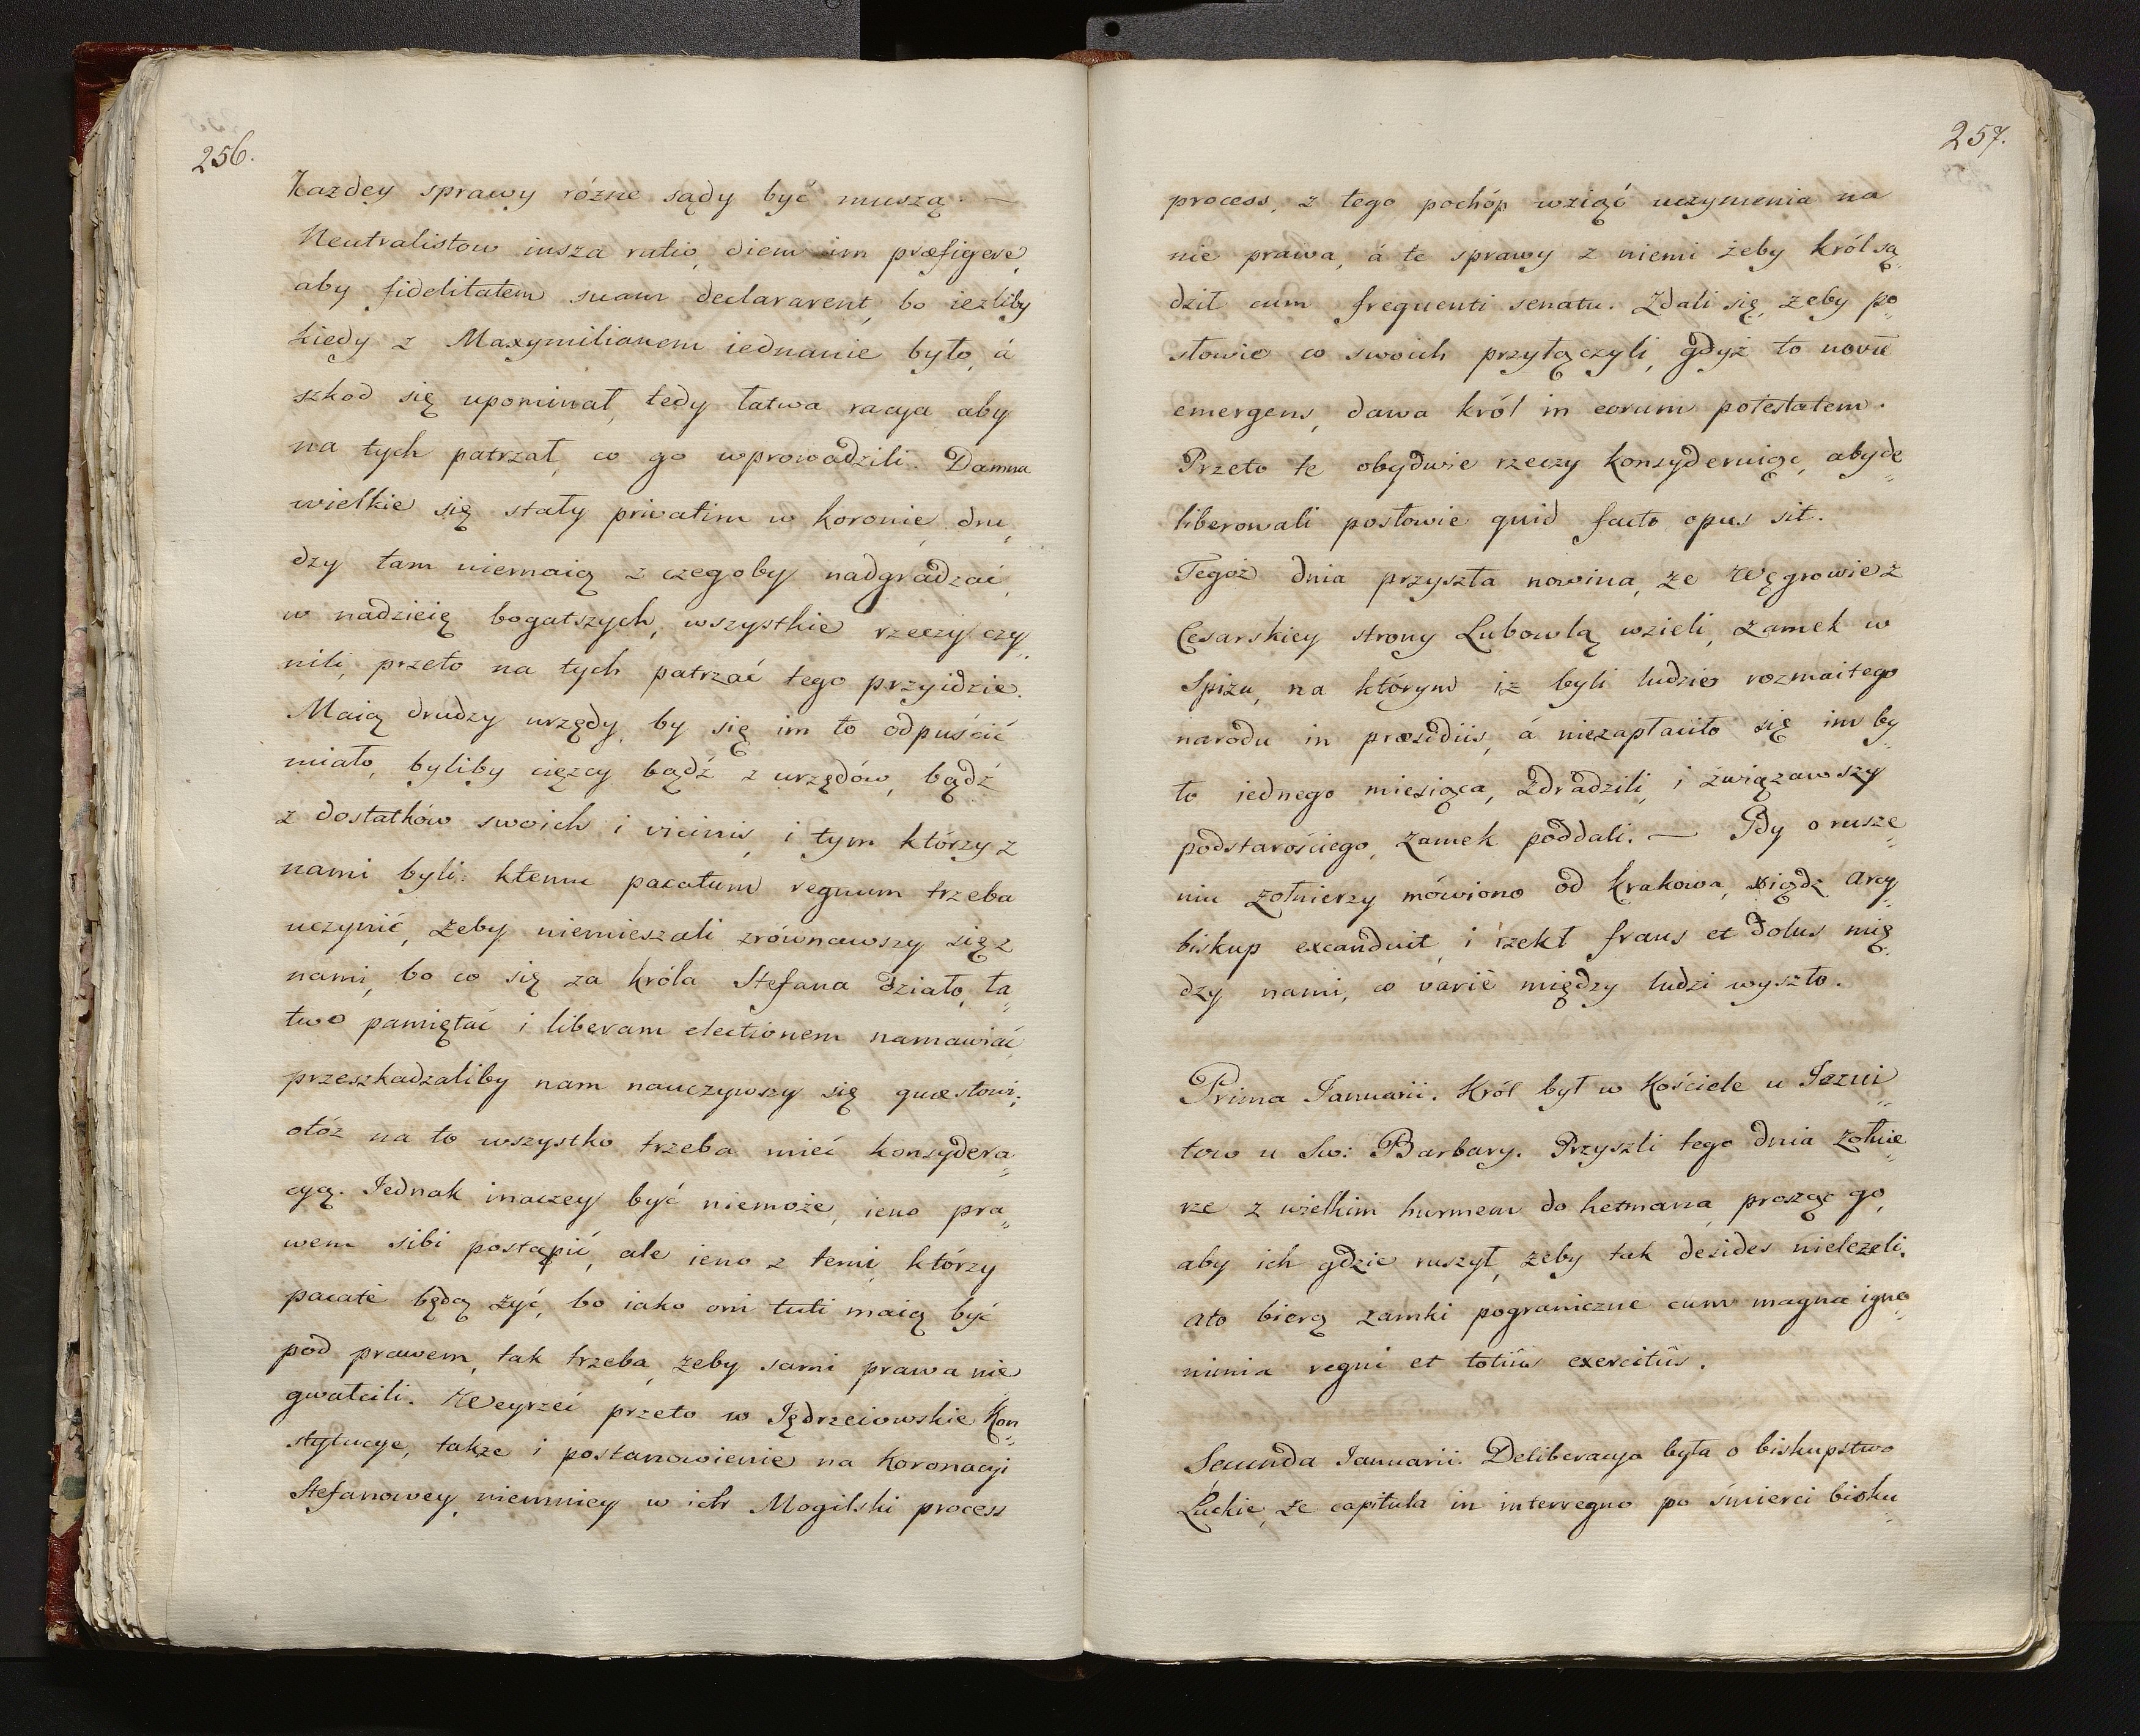 256.
Kazdey sprawy rózne sądy być muszą. —
Neutralistow insza ratio, diem im præfigere,
aby fidelitatem suam declararent, bo iezliby
kiedy z Maxymilianem iednanie było, á
szkod się upominał, tedy łatwa racya aby
na tych patrzał, co go wprowadzili. Damna
wielkie się stały privatim w koronie, dru„
dzy tam niemaią z czegoby nadgradzać,
w nadzieię bogatszych, wszystkie rzeczy czy„
nili, przeto na tych patrzać tego przyidzie.
Maią drudzy urzędy, by się im to odpuścić
miało, byliby cięzcy bądź z urzędów, bądź
z dostatków swoich i vicinis, i tym którzy z
nami byli: ktemu pacatum regnum trzeba
uczynić, żeby niemieszali zrównawszy się z
nami, bo co się za króla Stefana działo, ła„
two pamiętać i liberam electionem namawiać
przeszkadzaliby nam nauczywszy się quæstowi;
otóz na to wszystko trzeba mieć konsydera„
cyą. Jednak inaczey być niemoże, ieno pra„
wem sibi postąpić, ale ieno z temi, którzy
pacatè będą żyć, bo iako oni tuti maią być
pod prawem, tak trzeba, żeby sami prawa nie
gwałcili. Weyrzeć przeto w Jędrzeiowskie Kon„
stytucye, także i postanowienie na Koronacyi
Stefanowey, niemniey w ich Mogilski process
257.
process, z tego pochóp wziąć uczynienia na
nie prawa, á te sprawy z niemi żeby król są„
dził cum frequenti senatu. Zdali się, żeby po„
słowie co swoich przyłączyli, gdyż to novũ
emergens, dawa król in eorum potestatem.
Przeto te obydwie rzeczy konsyderuiąc, abyde„
liberowali posłowie quid facto opus sit.
Tegoż dnia przyszła nowina, że Węgrowie z
Cesarskiey strony Lubowlą wzieli, zamek w
Spizu, na którym iż byli ludzie rozmaitego
narodu in præsidiis, á niezapłaciło się im by„
ło iednego miesiąca, zdradzili, i związawszy
podstarościego, zamek poddali. — Gdy o rusze„
niu żołnierzy mówiono od Krakowa, xiądz Arcy„
biskup excanduit, i rzekł fraus et dolus mię„
dzy nami, co variè między ludzi wyszło.
Prima Januarii. Król był w Kościele u Jezui„
tow u Sw: Barbary. Przyszli tego dnia żołnie„
rze z wielkim hurmem do hetmana, prosząc go,
aby ich gdzie ruszył, żeby tak desides nieleżeli,
ato biorą zamki pograniczne cum magna igno„
minia regni et totiûs exercitûs.
Secunda Januarii. Deliberacya była o biskupstwo
Łuckie, że capitula in interregno po śmierci bisku„